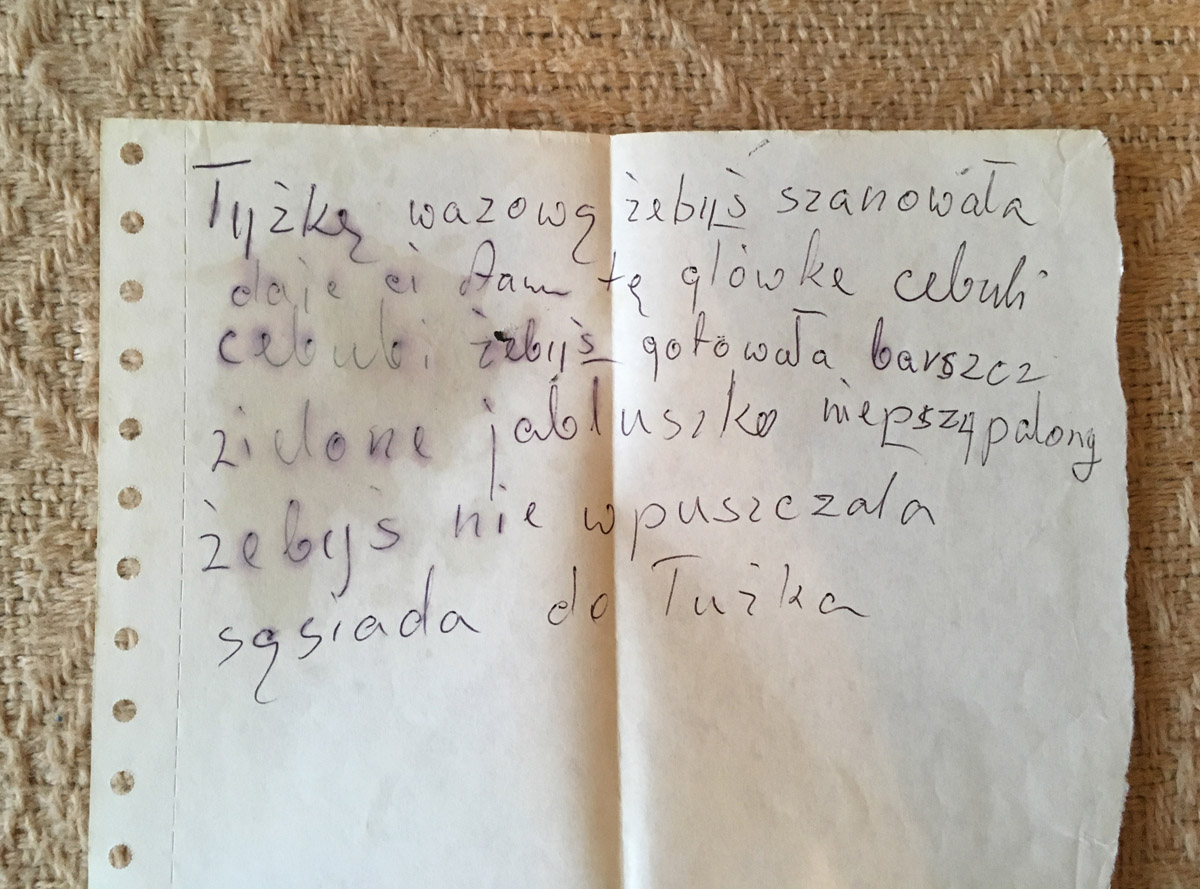 Łyżkę wazową żebyś szanowała
daje ci tę główke cebuli
cebuli żebyś gotowała barszcz
zielone jabłuszko
żebyś nie wpuszczala
sąsiada do Łużka